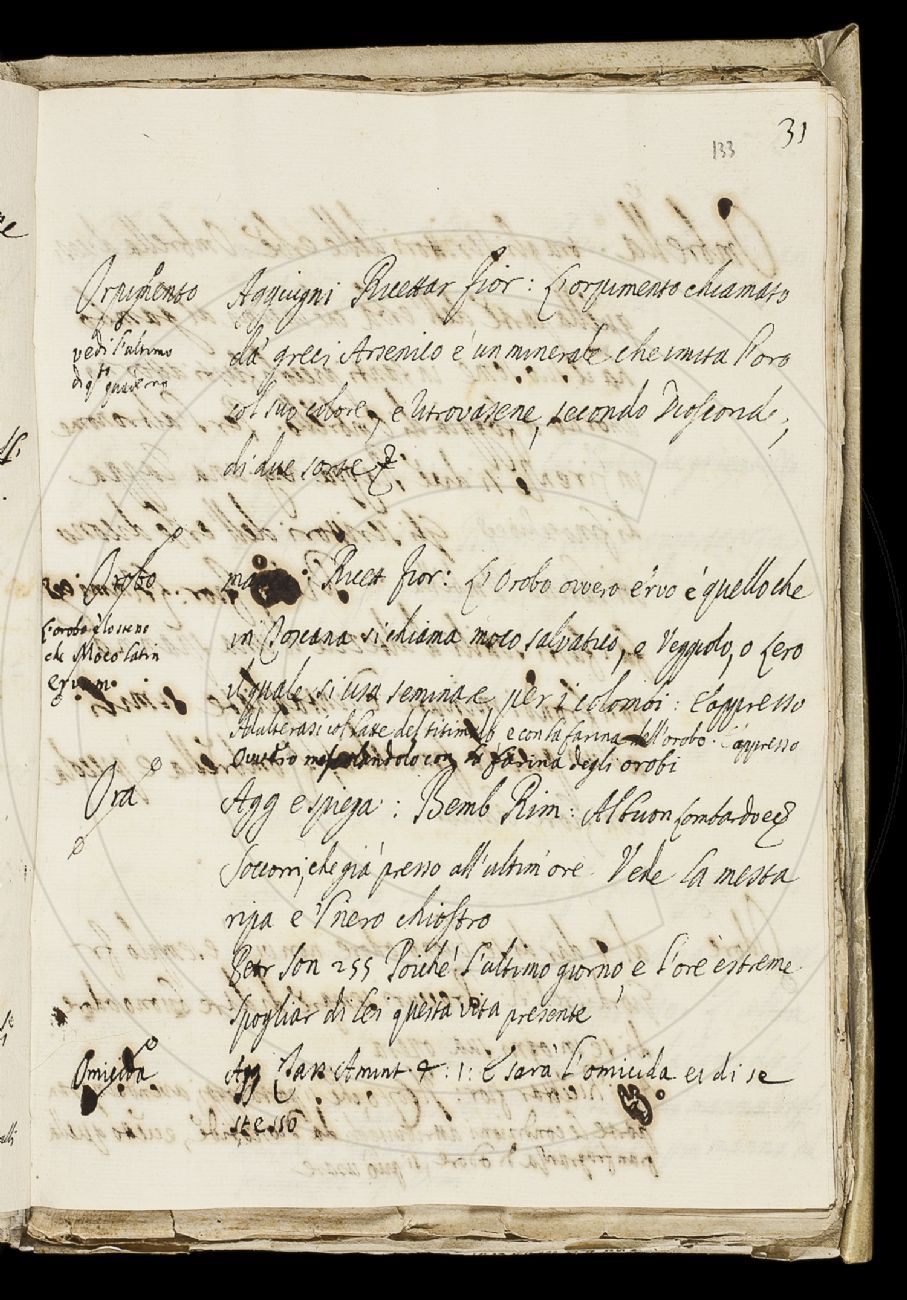 31
133
Orpimento
vedi l'ultimo
di qto quaderno
Aggiugni Ricettar fior: L'orpimento chiamato
da' greci Arsenico é un minerale che imita l'oro
col suo colore, e ritrovasene, secondo Dioscoride,
di due sorte
Orobo
L'orobo è lo steno
che Moco latin
ervum.
Ricet fior: L'Orobo ovvero érvo é quello che
in Toscana si chiama moco salvatico, e Veggiolo, o Lero
il quale si usa seminare per i colombi: E appresso
Adulterasi col latte del titimalo e con la farina dell'orobo. E appresso
Ovvero mescolandolo con la farina degli orobi
Ora
Agg e spiega: Bemb Rim: Al buon Lombardo
Soccorri, che già presso all'ultim'ore. Vede la mesta
ripa e 'l nero chiostro
Petr Son 255 Poiché l'ultimo giorno, e l'ore estreme
Spogliar di lei questa vita presente
Omicida
Agg Tass Amint 4:1: E sara l'omicida ei di se
stesso